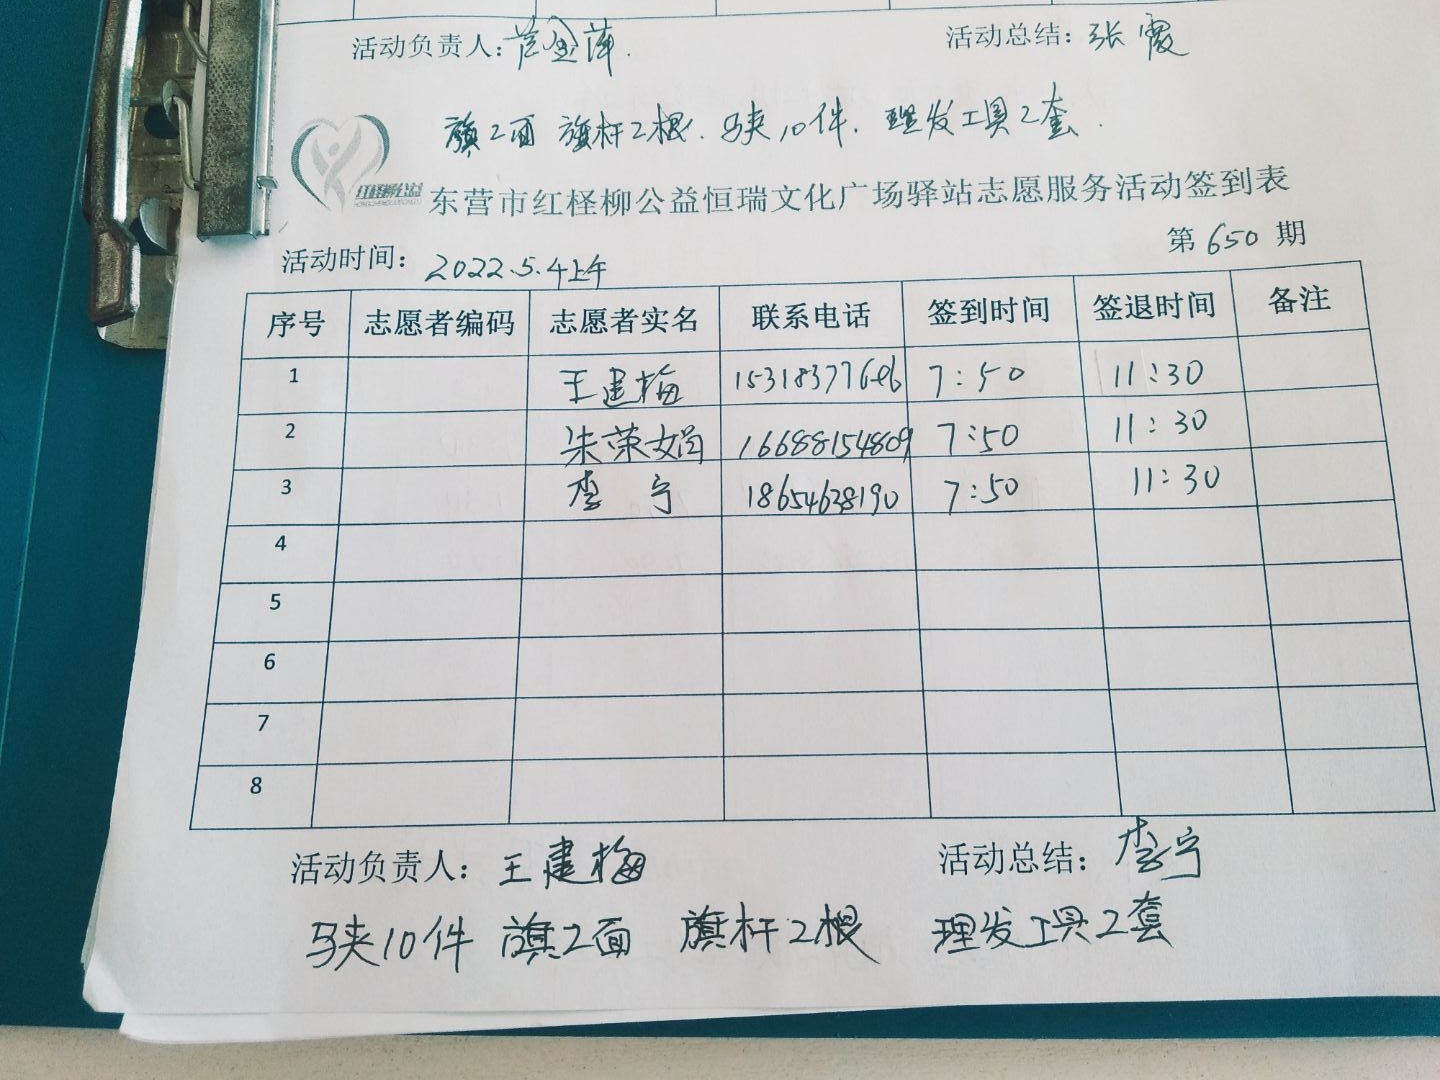 活动负责人: 金萍. 活动总结: 张霞
旗2面 旗杆2根. 马夹10件. 理发工具2套.
红柽柳公益
东营市红柽柳公益恒瑞文化广场驿站志愿服务活动签到表
活动时间: 2022.5.4上午 第650期
序号 志愿者编码 志愿者实名 联系电话 签到时间 签退时间 备注
1 王建梅 7:50 11:30
2 朱荣娟 16688154809 7:50 11:30
3 李宁 18654638190 7:50 11:30
4
5
6
7
8
活动负责人: 王建梅 活动总结: 李宁
马夹10件 旗2面 旗杆2根 理发工具2套